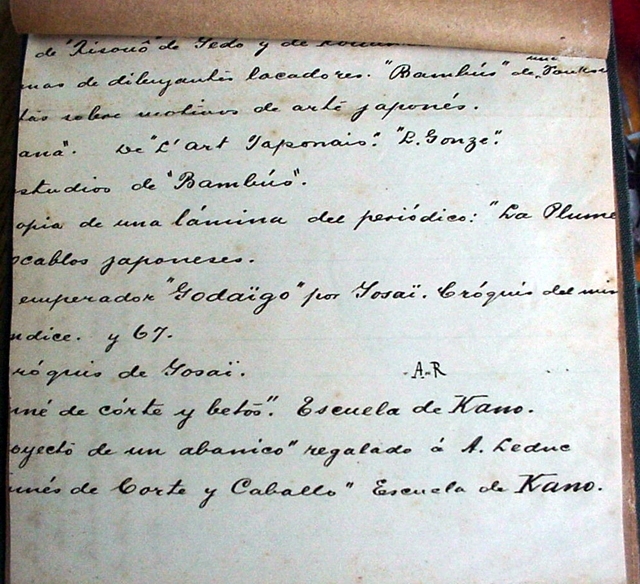 de "Risouô" de Yedo y de
mas de dibuyantes lacadores. "Bambús" de
tas sobre motivos de arte japonés.
ana". De "L'art Japonais". "L. Gonze".
studios de "Bambús".
opia de una lámina del periódico: "La Plume
ocablos japoneses.
emperador "Godaïgo" por Yosaï. Cróquis del mis
ndice. y 67.
róquis de Yosaï. A-R
de córte y betòs". Escuela de Kano.
oyecto de un abanico" regalado á A. Leduc
unés de Corte y Caballo" Escuela de Kano.